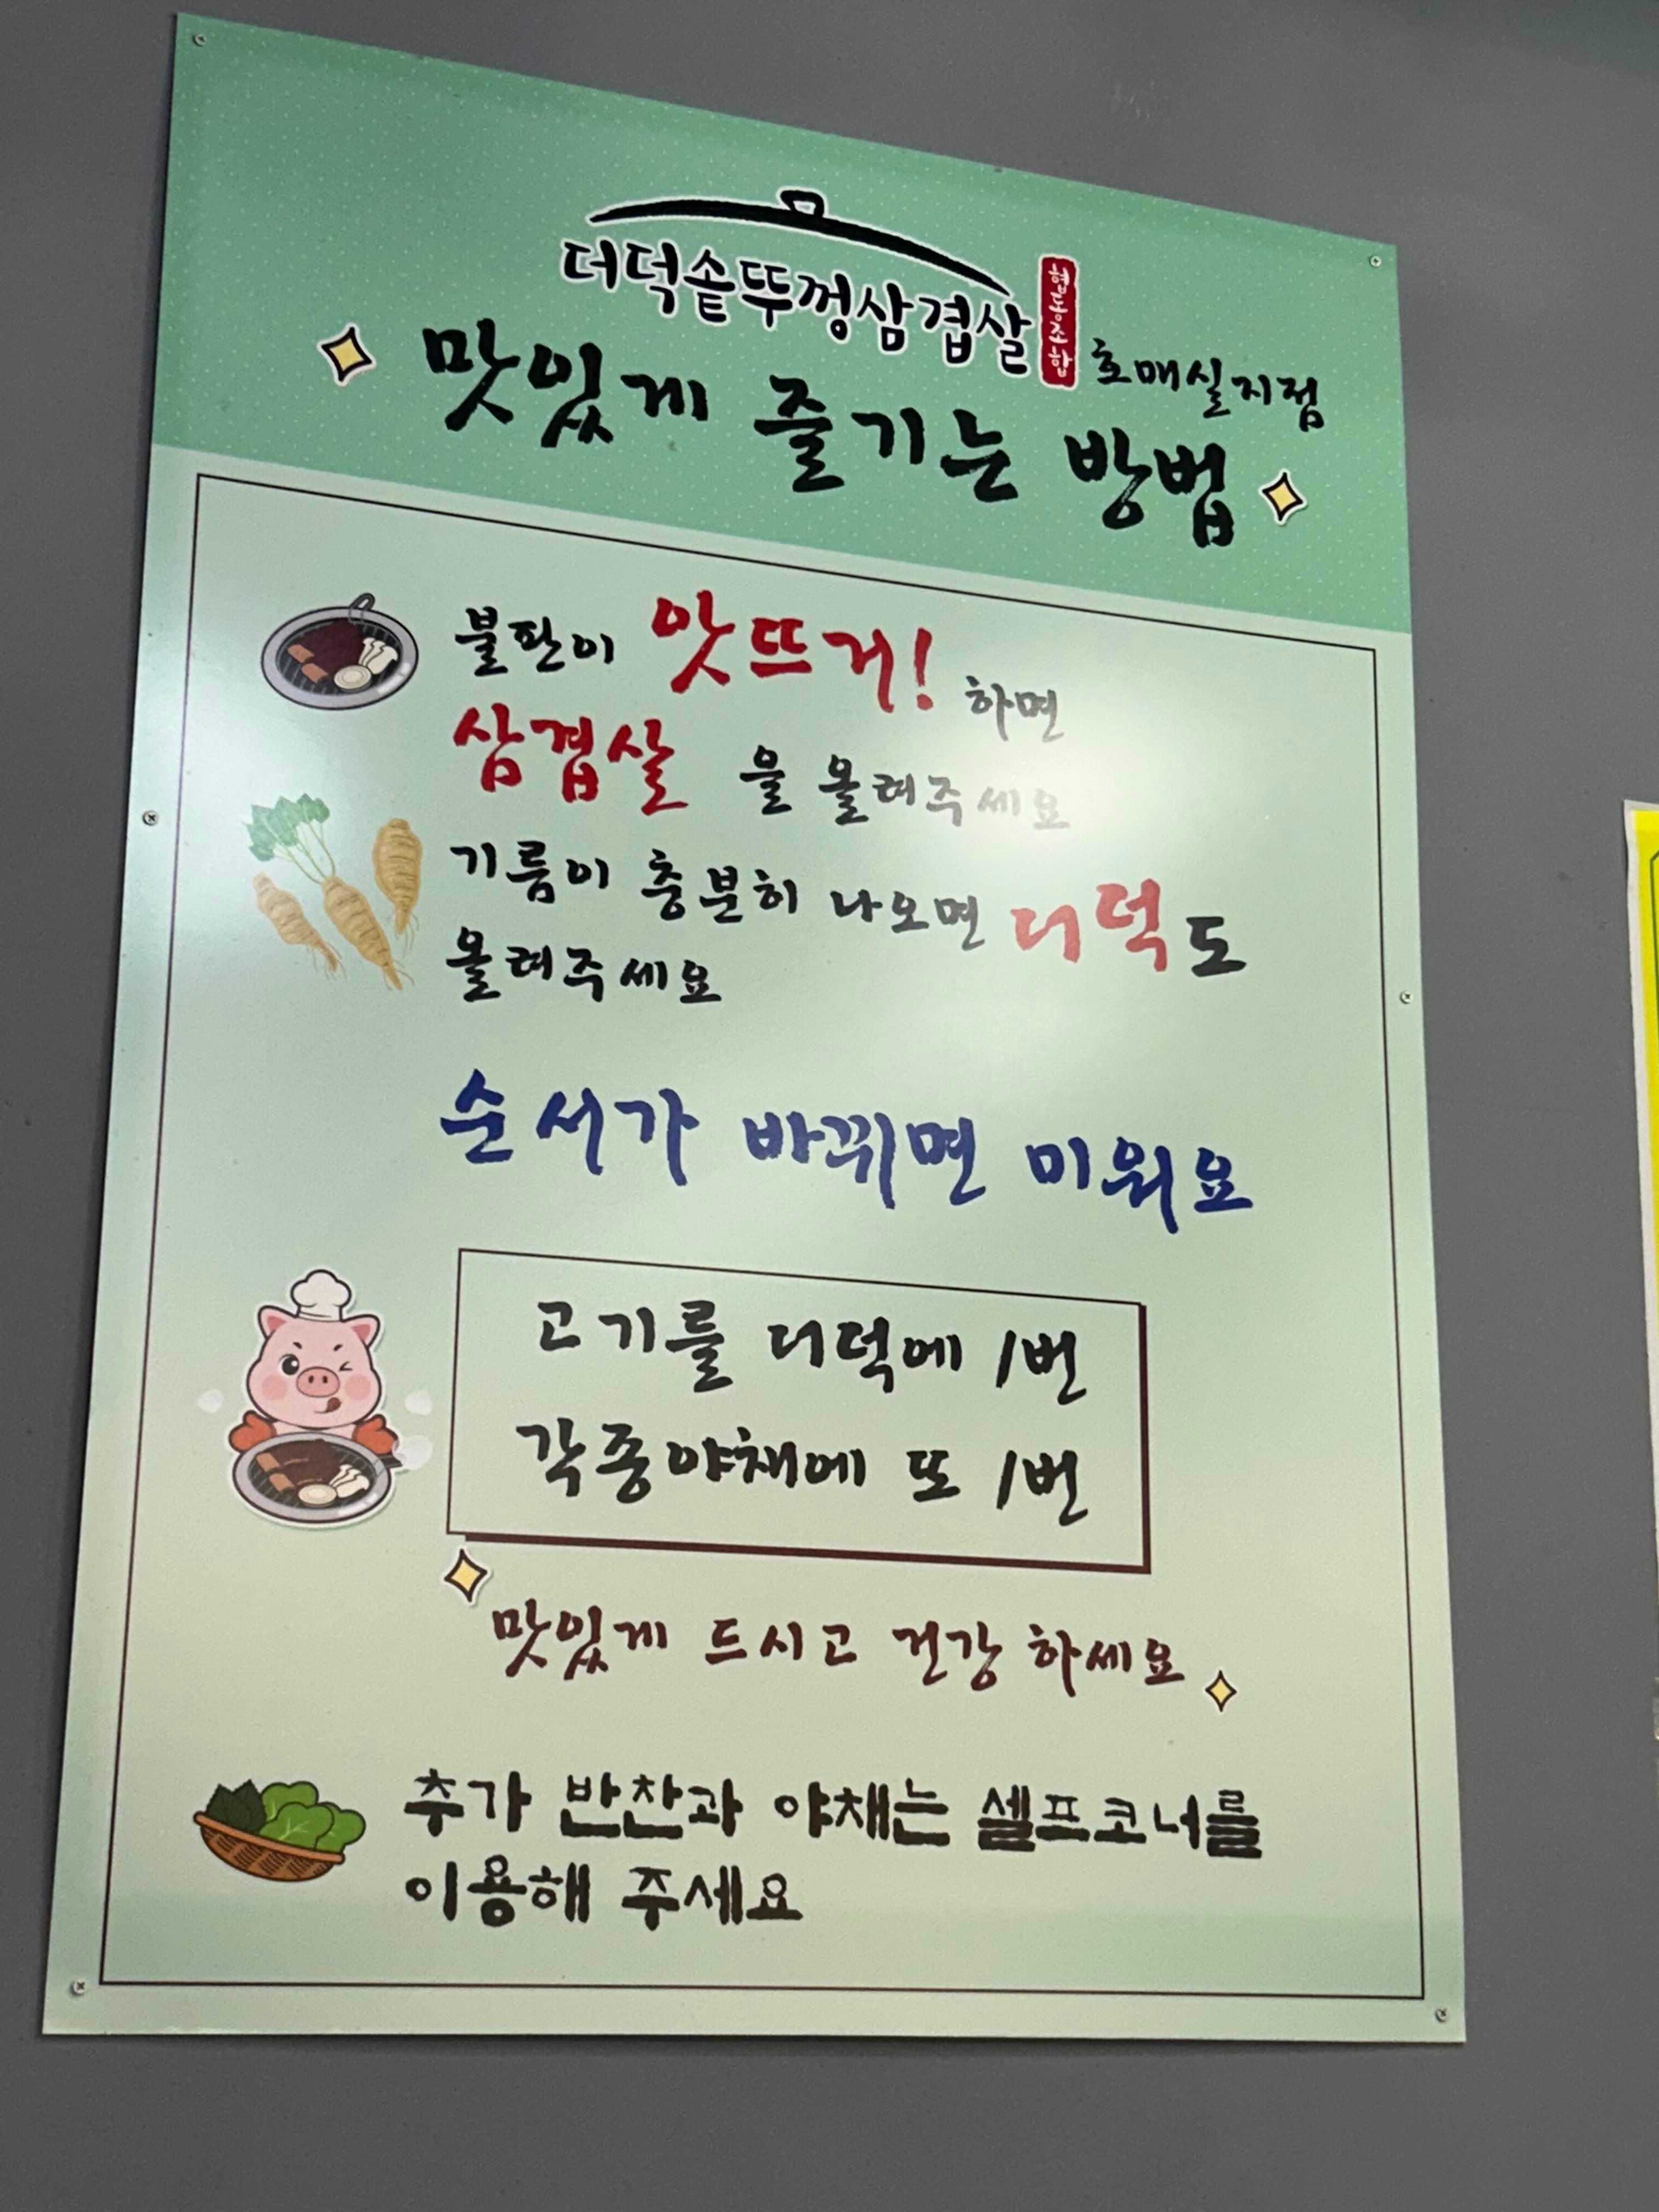 더덕솥뚜껑삼겹살 협동조합 호매실지점
맛있게 즐기는 방법
불판이 앗뜨거! 하면
삼겹살 을 올려주세요
기름이 충분히 나오면 더덕도
올려주세요
순서가 바뀌면 미워요
고기를 더덕에 1번
각종야채에 또 1번
맛있게 드시고 건강 하세요
추가 반찬과 야채는 셀프코너를
이용해 주세요